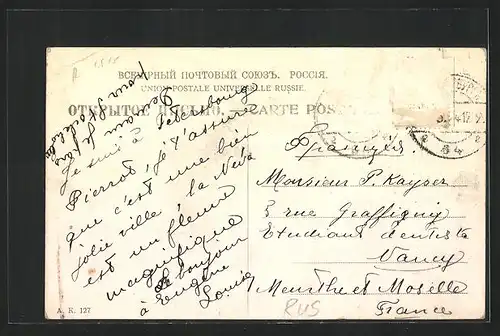 ВСЕМІРНЫЙ ПОЧТОВЫЙ СОЮЗЪ. РОССІЯ.
UNION POSTALE UNIVERSELLE RUSSIE.
ОТКРЫТОЕ ПИСЬМО. — CARTE POSTALE
Demain je pars
pour Stockholm
Je suis à Petersbourg
Pierrot, je t'assure
que c'est une bien
jolie ville, la Neva
est un fleuve
magnifique
Le bonjour
à Eugène
Louis
Франція.
Monsieur P. Kayser
3 rue Graffigny
Etudiant dentiste
Nancy
Meurthe et Moselle
France
RUS
A. K. 127